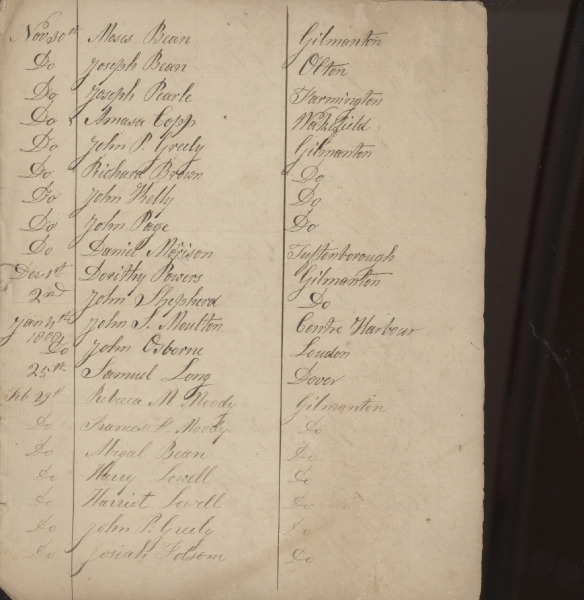 Nov 30th Moses Bean Gilmanton
Do Joseph Bean Olton
Do Joseph Pearle Farmington
Do Amasa Copp Wakefield
Do John P. Greely Gilmanton
Do Richard Brown Do
Do John Kelly Do
Do John Page Do
Do Daniel Morison Tuftonborough
Dec 1st Dorithy Powers Gilmanton
2nd John Shepherd Do
Jan 4th John S. Moulton Centre Harbour
Do John Osborne Loudon
25th Samuel Long Dover
Feb 29th Rebecca M Moody Gilmanton
Do Frances H. Moody Do
Do Abigal Bean Do
Do Harry Lowell Do
Do Harriet Lowell Do
Do John P. Greely Do
Do Josiah Folsom Do